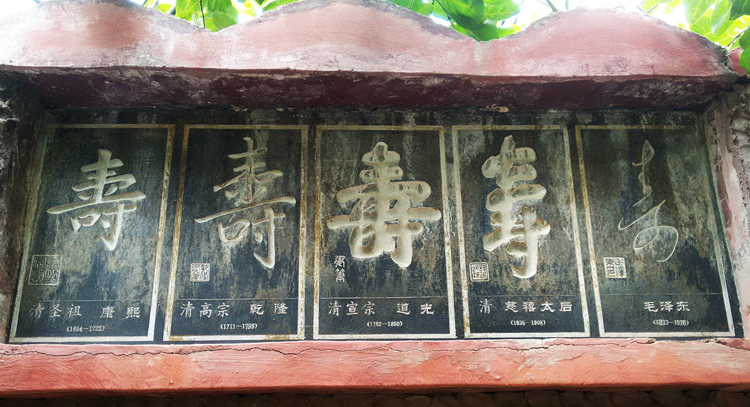 寿
清圣祖 康熙
(1654—1722)
寿
清高宗 乾隆
(1711—1799)
寿
清宣宗 道光
(1782—1850)
寿
清 慈禧太后
(1835—1908)
寿
毛泽东
(1893—1976)